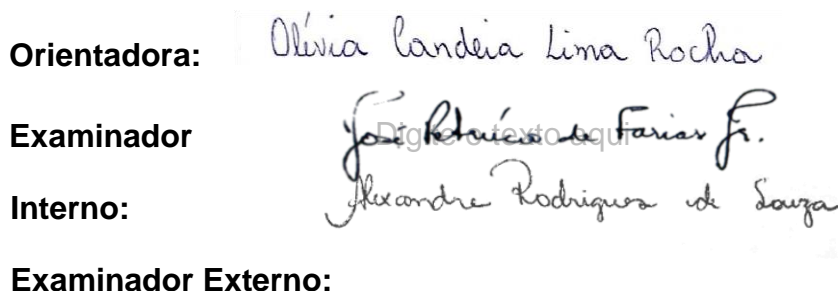 Orientadora: Olívia Candeia Lima Rocha
Examinador José Petrúcio de Farias Jr.
Digite o texto aqui
Interno: Alexandre Rodrigues de Souza
Examinador Externo: